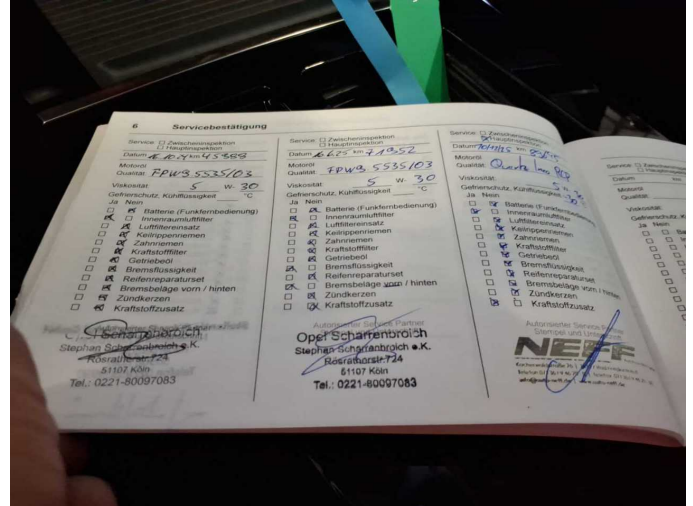 6 Servicebestätigung
Service: ☐ Zwischeninspektion
☐ Hauptinspektion
Datum km 45388
Motoröl
Qualität: FPW9.5535/03
Viskosität 5 W- 30
Gefrierschutz, Kühlflüssigkeit °C
Ja Nein
Batterie (Funkfernbedienung)
Innenraumluftfilter
Luftfiltereinsatz
Keilrippenriemen
Zahnriemen
Kraftstofffilter
Getriebeöl
Bremsflüssigkeit
Reifenreparaturset
Bremsbeläge vorn / hinten
Zündkerzen
Kraftstoffzusatz
Opel Scharrenbroich
Stephan Scharrenbroich e.K.
Rösratherstr.724
51107 Köln
Tel.: 0221-80097083
Service: ☐ Zwischeninspektion
☐ Hauptinspektion
Datum 6.6.25 km 71952
Motoröl
Qualität: FPW9.5535/03
Viskosität 5 W- 30
Gefrierschutz, Kühlflüssigkeit °C
Ja Nein
Batterie (Funkfernbedienung)
Innenraumluftfilter
Luftfiltereinsatz
Keilrippenriemen
Zahnriemen
Kraftstofffilter
Getriebeöl
Bremsflüssigkeit
Reifenreparaturset
Bremsbeläge vorn / hinten
Zündkerzen
Kraftstoffzusatz
Autorisierter Service Partner
Opel Scharrenbroich
Stephan Scharrenbroich e.K.
Rösratherstr.724
51107 Köln
Tel.: 0221-80097083
Service: ☐ Zwischeninspektion
Hauptinspektion
Datum km
Motoröl
Qualität: Quartz
Viskosität 5 30
Gefrierschutz, Kühlflüssigkeit
Ja Nein
Batterie (Funkfernbedienung)
Innenraumluftfilter
Luftfiltereinsatz
Keilrippenriemen
Zahnriemen
Kraftstofffilter
Getriebeöl
Bremsflüssigkeit
Reifenreparaturset
Bremsbeläge vorn / hinten
Zündkerzen
Kraftstoffzusatz
Autorisierter Service Partner
Stempel und Unterschrift
NEFF
Service: ☐
Datum
Motoröl
Qualität:
Viskosität
Gefrierschutz,
Ja Nein